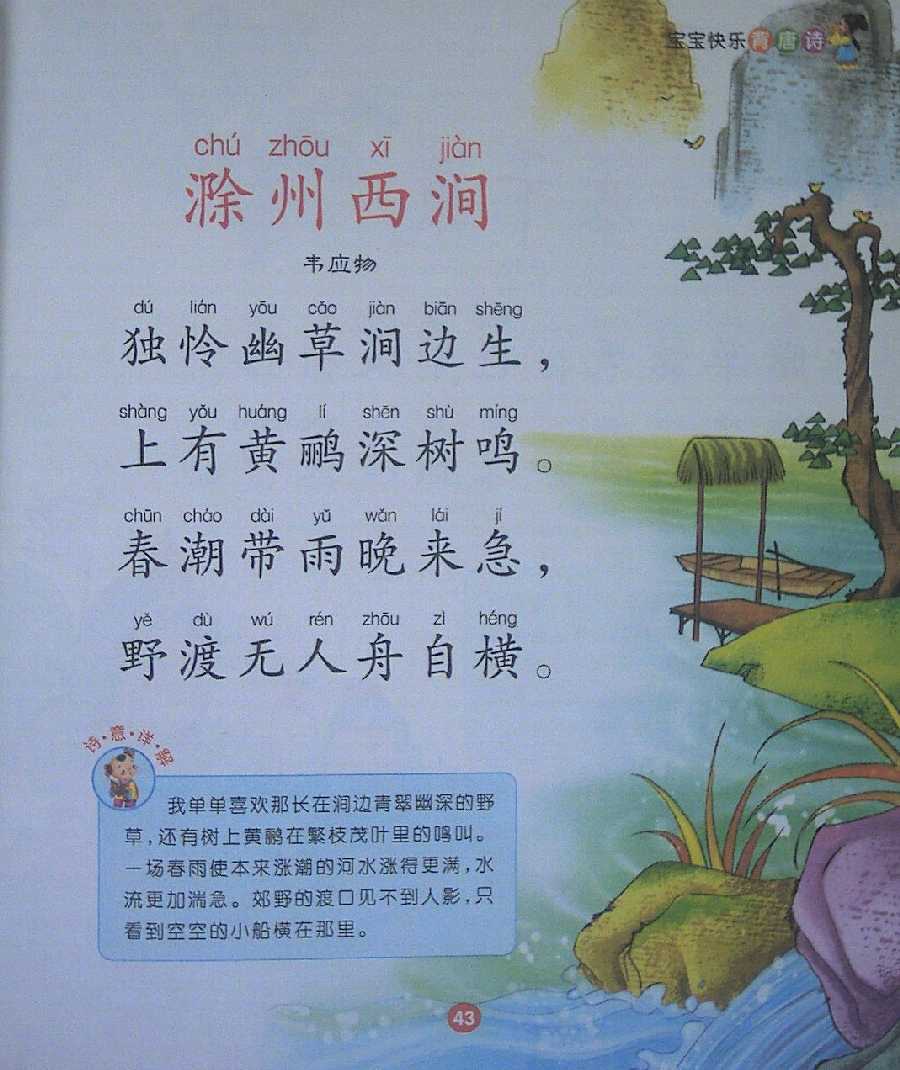 宝宝快乐背唐诗
chú zhōu xī jiàn
滁州西涧
韦应物
dú lián yōu cǎo jiàn biān shēng
独怜幽草涧边生，
shàng yǒu huáng lí shēn shù míng
上有黄鹂深树鸣。
chūn cháo dài yǔ wǎn lái jí
春潮带雨晚来急，
yě dù wú rén zhōu zì héng
野渡无人舟自横。
诗·意·详·解
我单单喜欢那长在涧边青翠幽深的野
草，还有树上黄鹂在繁枝茂叶里的鸣叫。
一场春雨使本来涨潮的河水涨得更满，水
流更加湍急。郊野的渡口见不到人影，只
看到空空的小船横在那里。
43